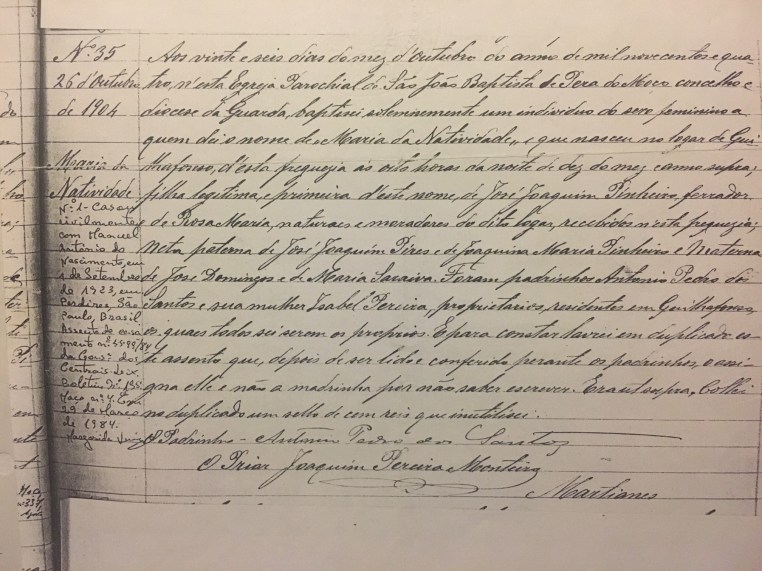 Nº 35
26 d'Outubro
de 1904
Maria da
Natividade
Nº 1 - Casou
civilmente
com Manuel
António do
Nascimento, em
1 de Setembro
de 1923, em
São
Paulo, Brasil
Assento de casa
mento nº
da Cons. dos
Centrais de Lx.
Boletim nº 135
Maço nº 4. Em
29 de Março
de 1984.
Aos vinte e seis dias do mez d'Outubro do anno de mil nove centos e qua
tro, n'esta Egreja Parochial de São João Baptista de Pera do Moço concelho e
diocese da Guarda, baptisei solemnemente um individuo do sexo feminino a
quem dei o nome de "Maria da Natividade" e que nasceu no logar de Gui
lhafonso, d'esta freguezia ás oito horas da noite de dez do mez e anno supra;
filha legitima, e primeira d'este nome, de José Joaquim Pinheiro, ferrador
de Rosa Maria, naturaes e moradores do dito logar, recebidos n'esta freguezia;
neta paterna de José Joaquim Pires e de Joaquina Maria Pinheiro e Materna
de José Domingos e de Maria Saraiva. Foram padrinhos Antonio Pedro dos
Santos e sua mulher Izabel Pereira, proprietarios, residentes em Guilhafonso
os quaes todos sei serem os proprios. E para constar lavrei em duplicado es-
te assento que, depois de ser lido e conferido perante os padrinhos, o assi-
gna elle e não a madrinha por não saber escrever. Era ut supra. Colhei
no duplicado um sello de cem reis que inutilisei.
O Padrinho - Antonio Pedro dos Santos
O Prior Joaquim Pereira Monteiro